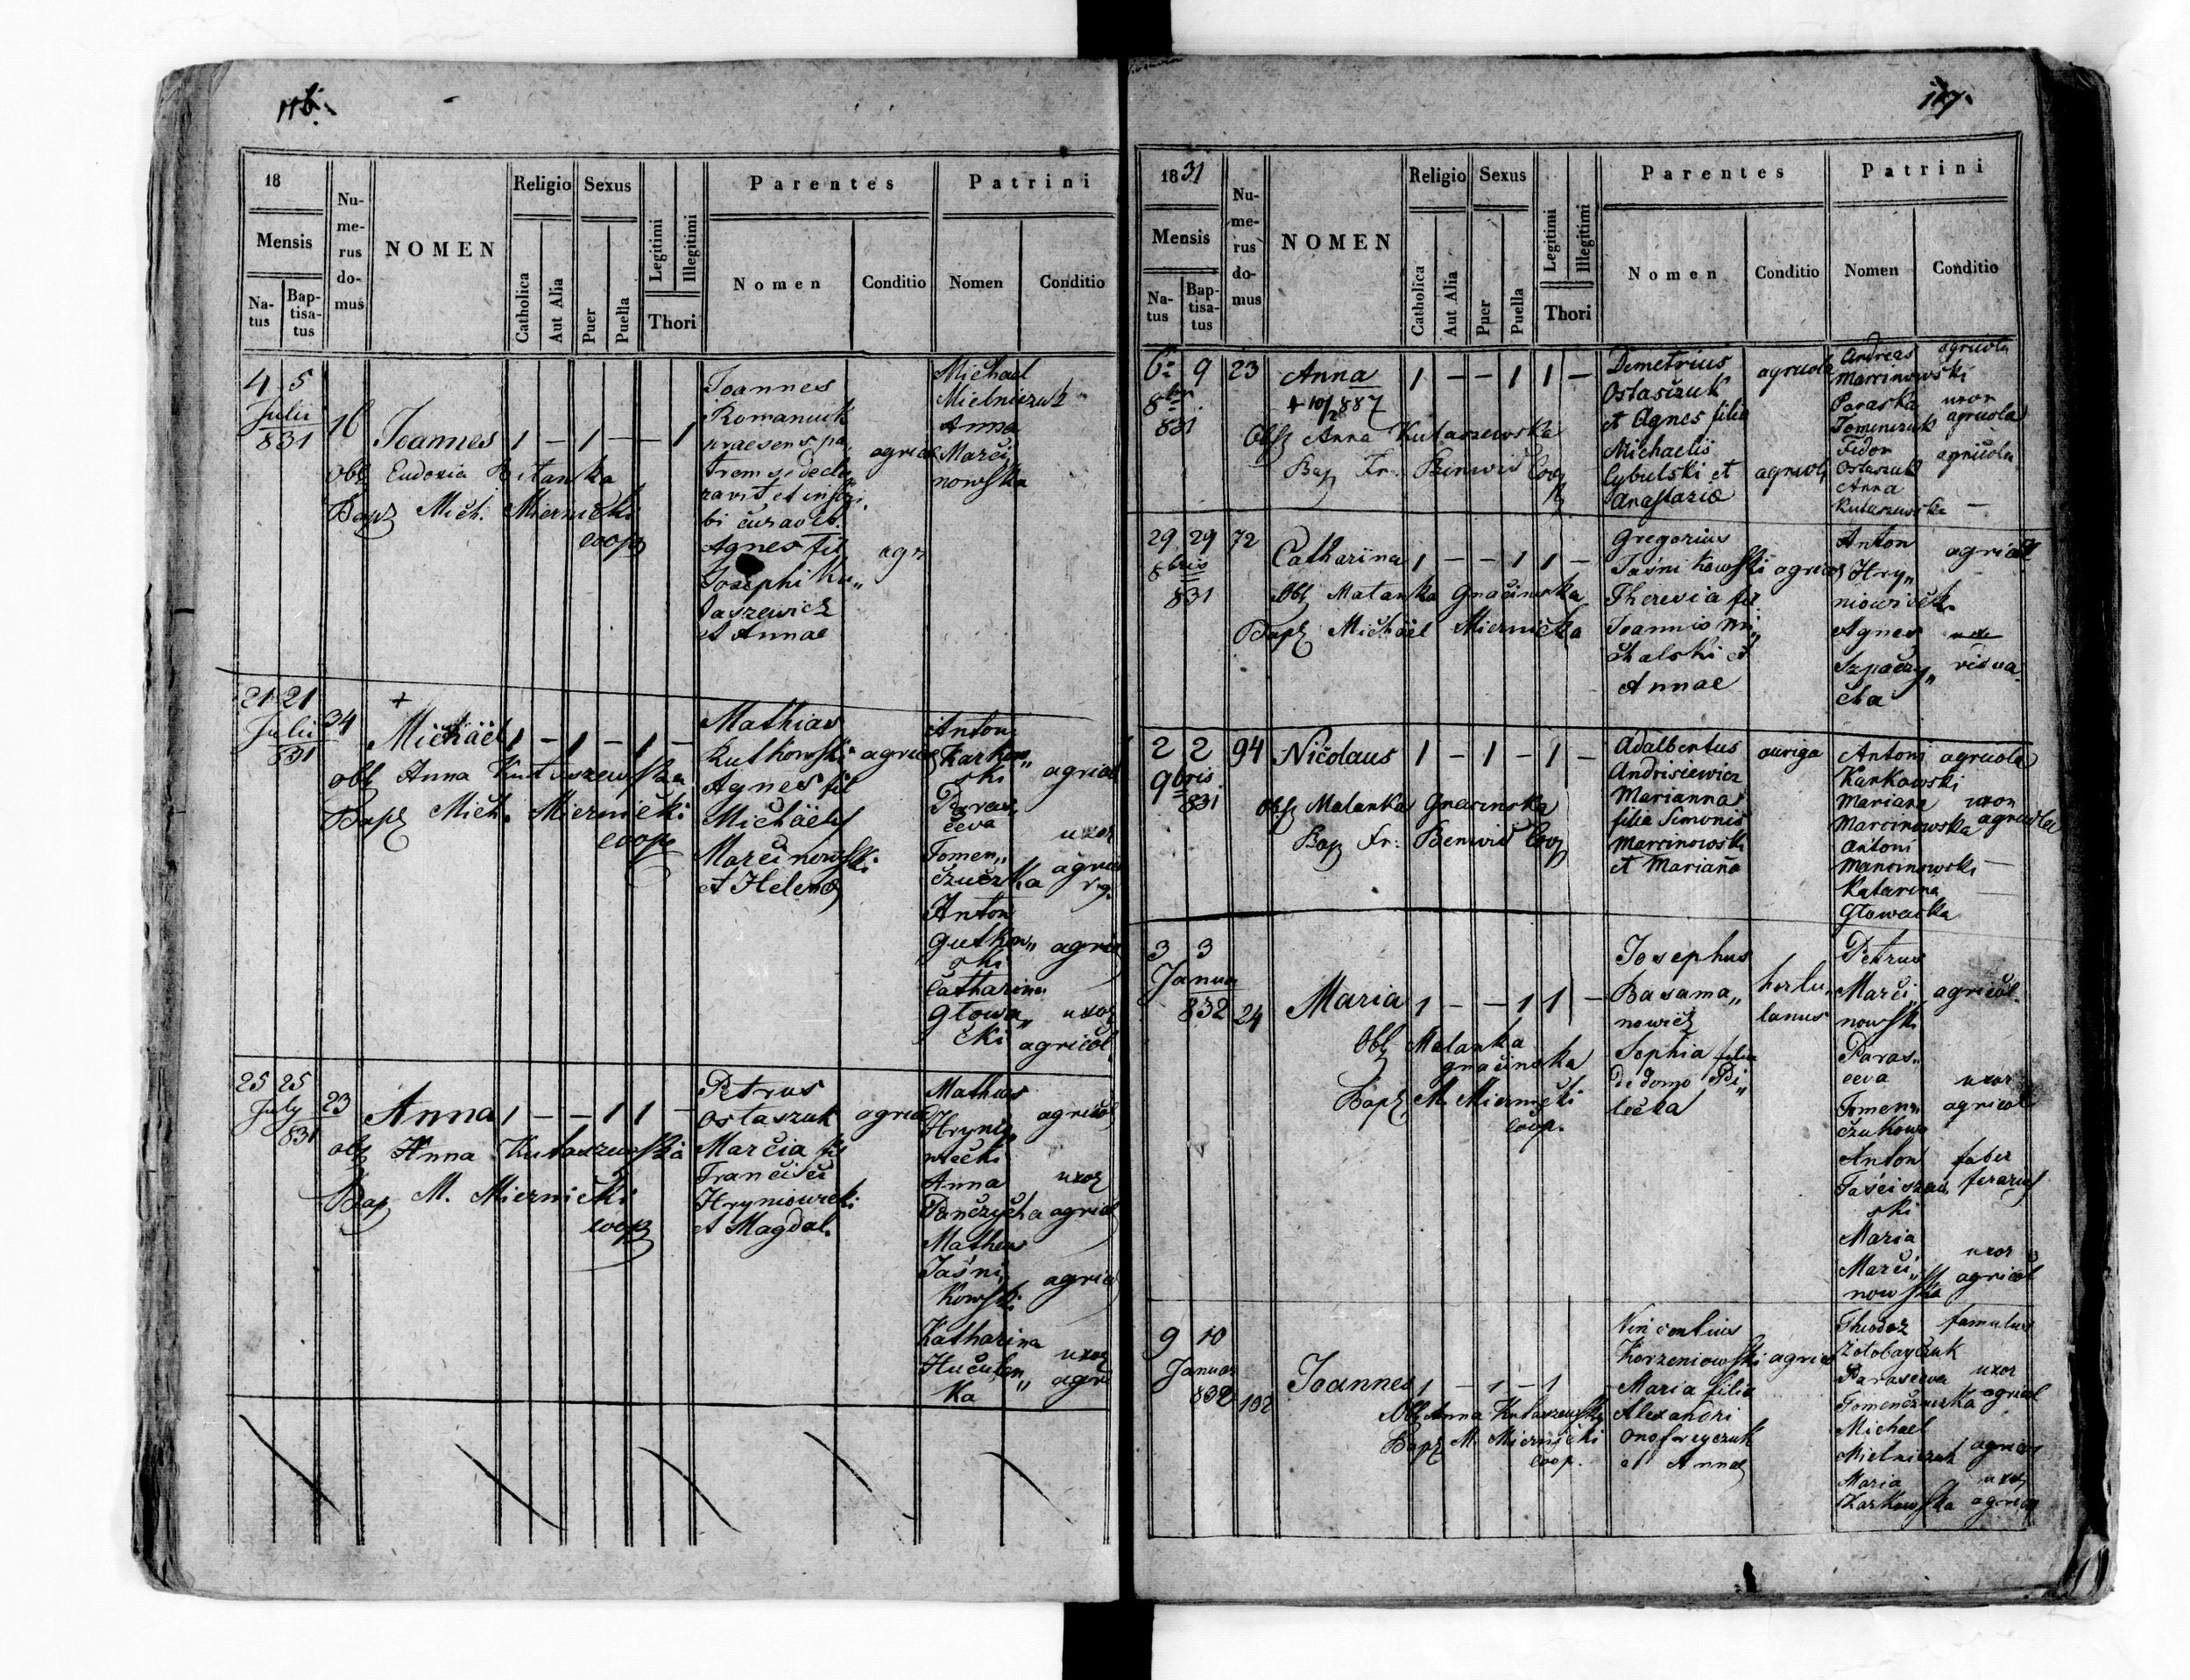 116.
18
Mensis
Na-
tus
Bap-
tisa-
tus
Nu-
me-
rus
do-
mus
NOMEN
Religio
Catholica
Aut Alia
Sexus
Puer
Puella
Legitimi
Illegitimi
Thori
Parentes
Nomen
Conditio
Patrini
Nomen
Conditio
4 5
Julii
831
16
Joannes 1 – 1 – – 1
Obſt Eudoxia
Bapt Mich. Miernicki
coop
Joannes
Romaniuk
praesens pa
trem se decla
ravit et inscri
bi curavit.
Agnes fil
Josephi Ku„
taszewicz
et Annae
agricol
agr
Michael
Mielniczuk
Anna
Marci„
nowska
21 21
Julii
831
34
+
Michäel 1 – 1 – 1 –
obſt Anna Kutaszewska
Bapt Mich. Miernicki
coop
Mathias
Kutkowski
Agnes fil
Michäelis
Marcinowski
et Helena
agricol
Anton
Karkow„
ski
Paras„
ceva
Tomen„
czuczka
Anton
Gutkow„
ski
Catharina
Głowa„
cki
agricol
uxor
agricol
agricol
uxor
agricol
25 25
July
831
23
Anna 1 – – 1 1 –
obſt Anna Kutaszewska
Bap M. Miernicki
coop
Petrus
Ostaszuk
Marcia fil
Francisci
Hryniowiecki
et Magdal.
agricol
Matheus
Hrynio„
wiecki
Anna
Panczycha
Matheus
Jaśni„
kowski
Katharina
Huculen„
ka
agricol
uxor
agricol
agricol
uxor
agri
117.
1831
Mensis
Na-
tus
Bap-
tisa-
tus
Nu-
me-
rus
do-
mus
NOMEN
Religio
Catholica
Aut Alia
Sexus
Puer
Puella
Legitimi
Illegitimi
Thori
Parentes
Nomen
Conditio
Patrini
Nomen
Conditio
6 9
8bris
831
23
Anna 1 – – 1 1 –
Obſt Anna Kutaszewska
Bap Fr. Benwid Coop
Demetrius
Ostaszuk
et Agnes filia
Michaelis
Cybulski et
Anastasiæ
agricola
agricol
Andreas
Marcinowski
Paraska
Tomenczuk
Fedor
Ostaszuk
Anna
Kutaszewska
agricola
uxor
agricola
agricola
–
29 29
8bris
831
72
Catharina 1 – – 1 1 –
Obſt Matanka Gnacinska
Bapt Michäel Miernicka
Gregorius
Jaśnikowski
Theresia fil
Joannis Mi„
chalski et
Annae
agricol
Anton
Hry„
niowiecki
Agnes
Szpaczy„
cha
agricol
vidua
2 2
9bris
831
94
Nicolaus 1 – 1 – 1 –
Obſt Malanka Gnacinska
Bap Fr. Benwid Coop
Adalbertus
Andrisiewicz
Marianna
filia Simonis
Marcinowski
et Mariana
auriga
Antoni
Karkowski
Mariana
Marcinowska
Antoni
Marcinowski
Katarina
Głowacka
agricola
uxor
agricola
–
3 3
Januar
832
24
Maria 1 – – 1 1 –
Obſt Malanka
Gnacinska
Bapt M. Miernicki
coop.
Josephus
Basama„
nowicz
Sophia filia
de domo Bi„
lecka
hortu„
lanus
Petrus
Marci„
nowski
Paras„
ceva
Tomen„
czukowa
Anton
ski
Maria
Marci„
nowska
agricol.
uxor
agricol
faber
ferarius
uxor
agricol
9 10
Januar
832
102
Joannes 1 – 1 – 1
Obſt Anna Kutaszewska
Bapt M. Miernicki
coop.
Vincentius
Korzeniowski
Maria filia
Alexandri
Onofreyczuk
et Annae
agricol
Theodor
Parasceva
Tomenczuczka
Michael
Mielniczuk
Maria
Karkowska
famulus
uxor
agricol
agricol
uxor
agricol